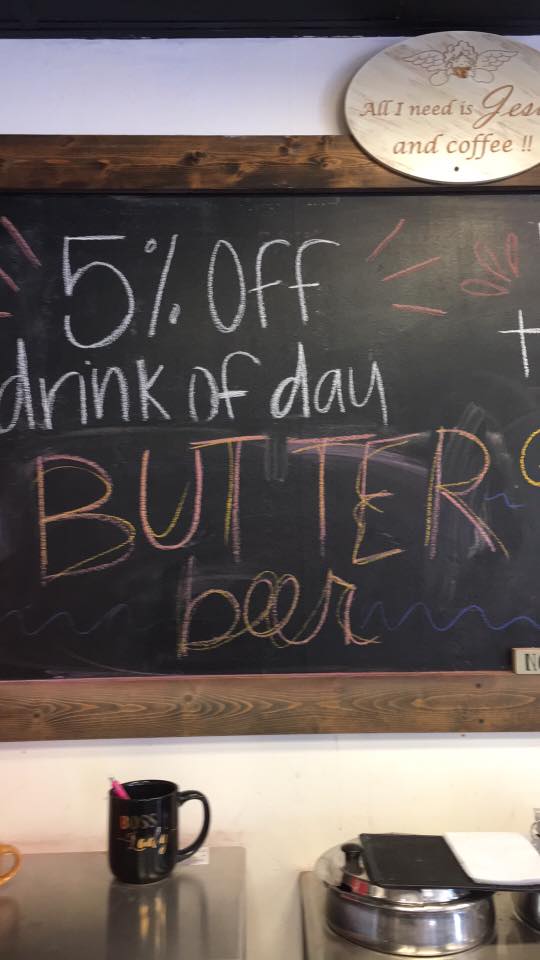 All I need is
and coffee !!
5% Off
drink of day
BUTTER
beer
BOSS
Lady